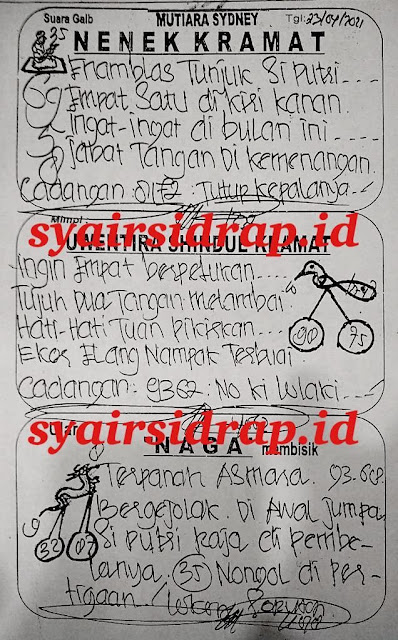 Suara Gaib MUTIARA SYDNEY Tgl: 23/04/2021
35
NENEK KRAMAT
Enamblas Tunjuk Si putri ----
69 Empat Satu di kisi kanan.
2 Ingat-ingat di bulan ini ----
3 Jabat Tangan Di kemenangan.
Cadangan : Tutup kepalanya --
Mimpi :
syairsidrap.id
UWENTIRA SHINDUL KRAMAT
Ingin Empat berpetukan ----
Tujuh Dua Tangan melambai
Hati-Hati Tuan Pikirkan ----
90 75
Ekor Elang Nampak Terburai
Cadangan : 9362 : No ki lwlaki ---
syairsidrap.id
NAGA membisik
Terpanah Asmara. 03.
Bergejolak. Di Awal jumpa
Si putri Raja di pembe-
32 07
lanya. 35 Nongol di per-
tigaan